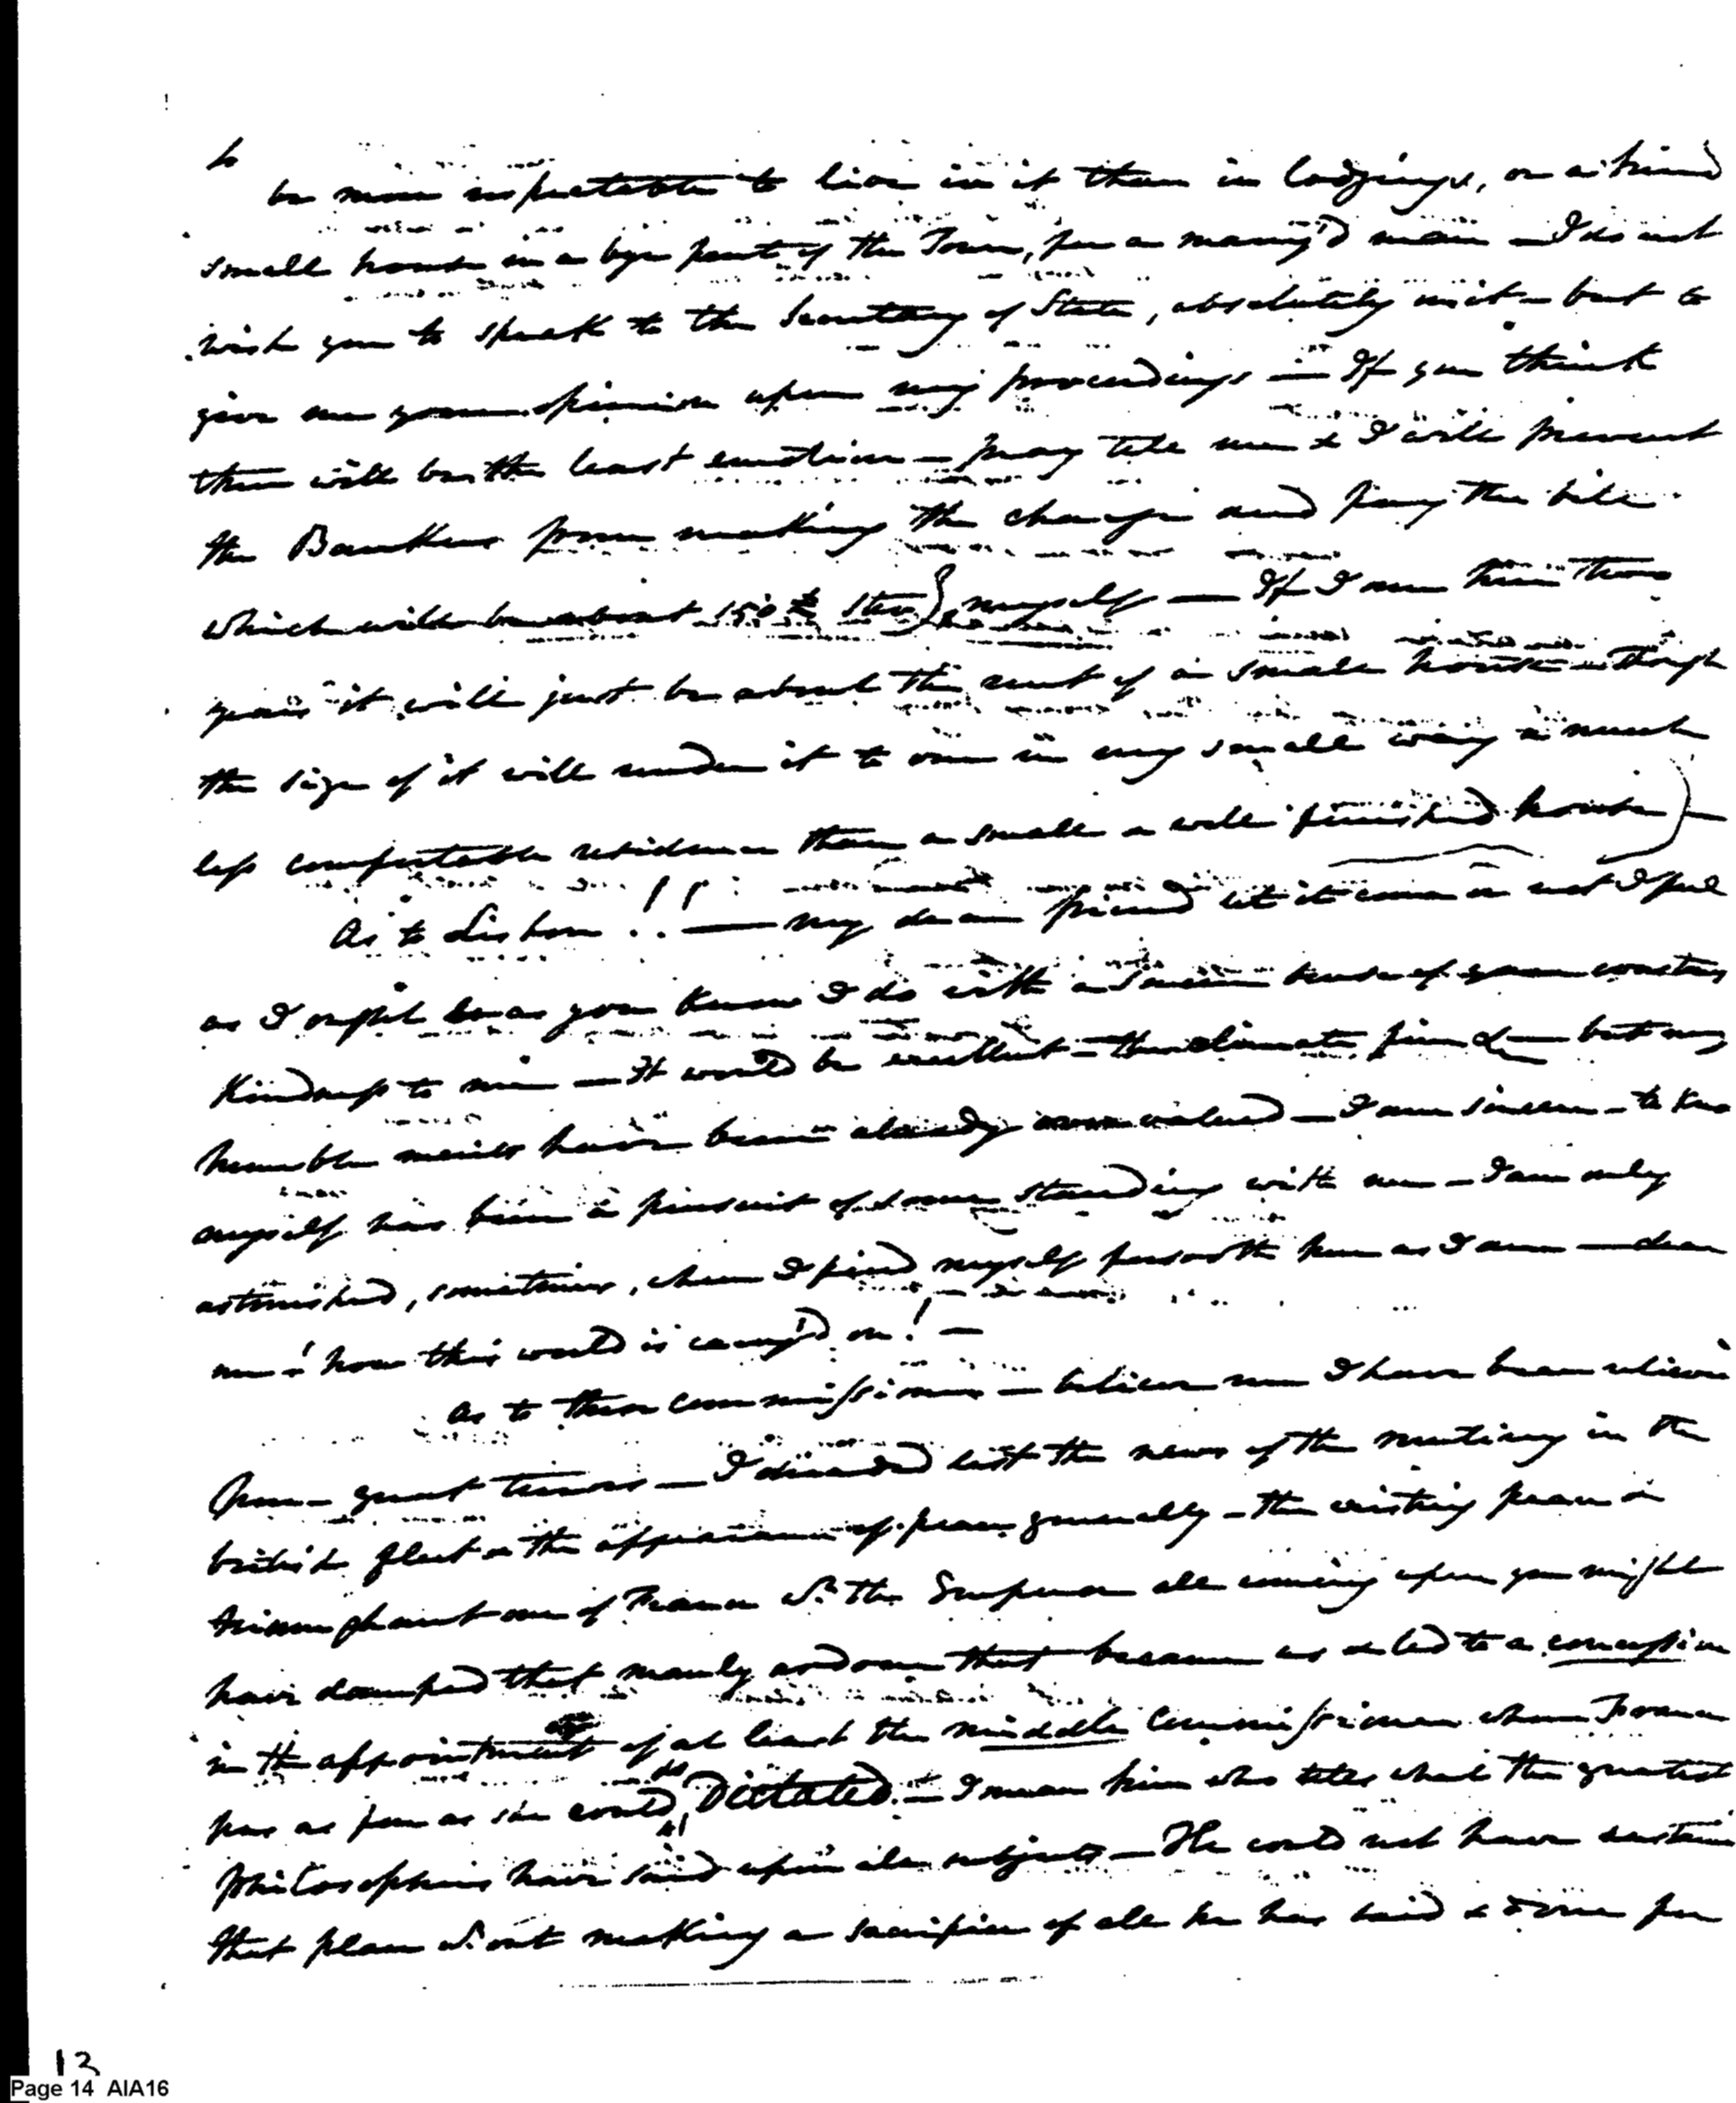 to
be more respectable to live in it than in lodgings, or a hired
small house in a bye part of the Town, for a marry'd man — I do not
wish you to speak to the Secretary of State, absolutely not — but to
give me your opinion upon my proceedings — If you think
there will be the least emotion — pray tell me & I will prevent
the Bankers from making the charge and pay the bill
which will be about 150 £ Ster myself — If I am here two
years it will just be about the rent of a small house — though
the size of it will render it to one in my small way a much
less comfortable residence than a small a well finished house) —
As to Lisbon !! — my dear friend let it come or not I feel
as I ought & as you know I do with a sincere sense of your constant
kindness to me — It would be excellent — the climate fine & — but my
humble merits have been already over valued — I am sincere — to know
myself has been a pursuit of some standing with me — I am only
astonished, sometimes, when I find myself forsooth here as I am — dear
me! how this world is carry'd on! —
As to these commissioners — believe me I have been relieved
from great terrors — I dreaded lest the news of the mutiny in the
british fleet & the appearance of peace generally — the existing peace &
triumphant one of France wh. the Emperor all coming upon you might
have damped that manly ardour that became us & led to a concession
in the appointment of at least the middle Commissioner whom France
has as far as she could, do Dictated. — I mean him who tells what the greatest
Philosophers have said upon all subjects — He could not have sustained
that place wh.out making a sacrifice of all he has said & done for
12
Page 14 AIA16